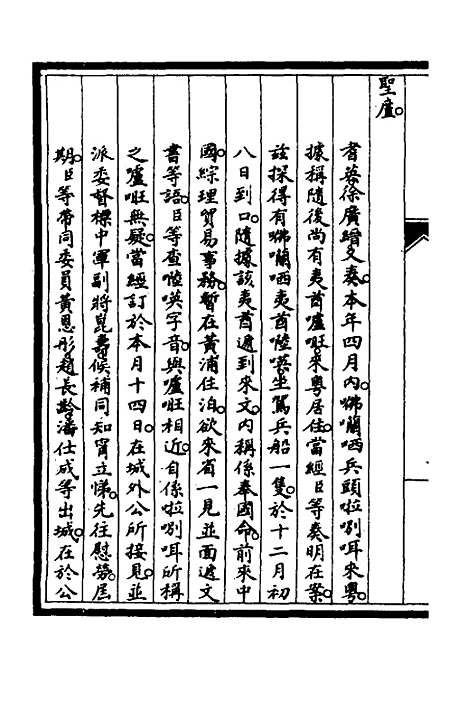 聖廬。
耆英徐廣縉又奏。本年四月內。咈囒哂兵頭啦唎咡來粵。
據稱隨後尚有夷酋嚧旺來粵居住。當經臣等奏明在案。
茲探得有咈囒哂夷酋陸嘆坐駕兵船一隻。於十二月初
八日到口。隨據該夷酋遞到來文。內稱係奉國命。前來中
國。綜理貿易事務。暫在黃浦住泊。欲來省一見並面遞文
書等語。臣等查陸英字音。與嚧旺相近。自係啦唎咡所稱
之嚧旺無疑。當經訂於本月十四日。在城外公所接見。並
派委督標中軍副將崑壽。候補同知甯立悌。先往慰勞。屆
期。臣等帶同委員黃恩彤趙長齡潘仕成等出城。在於公